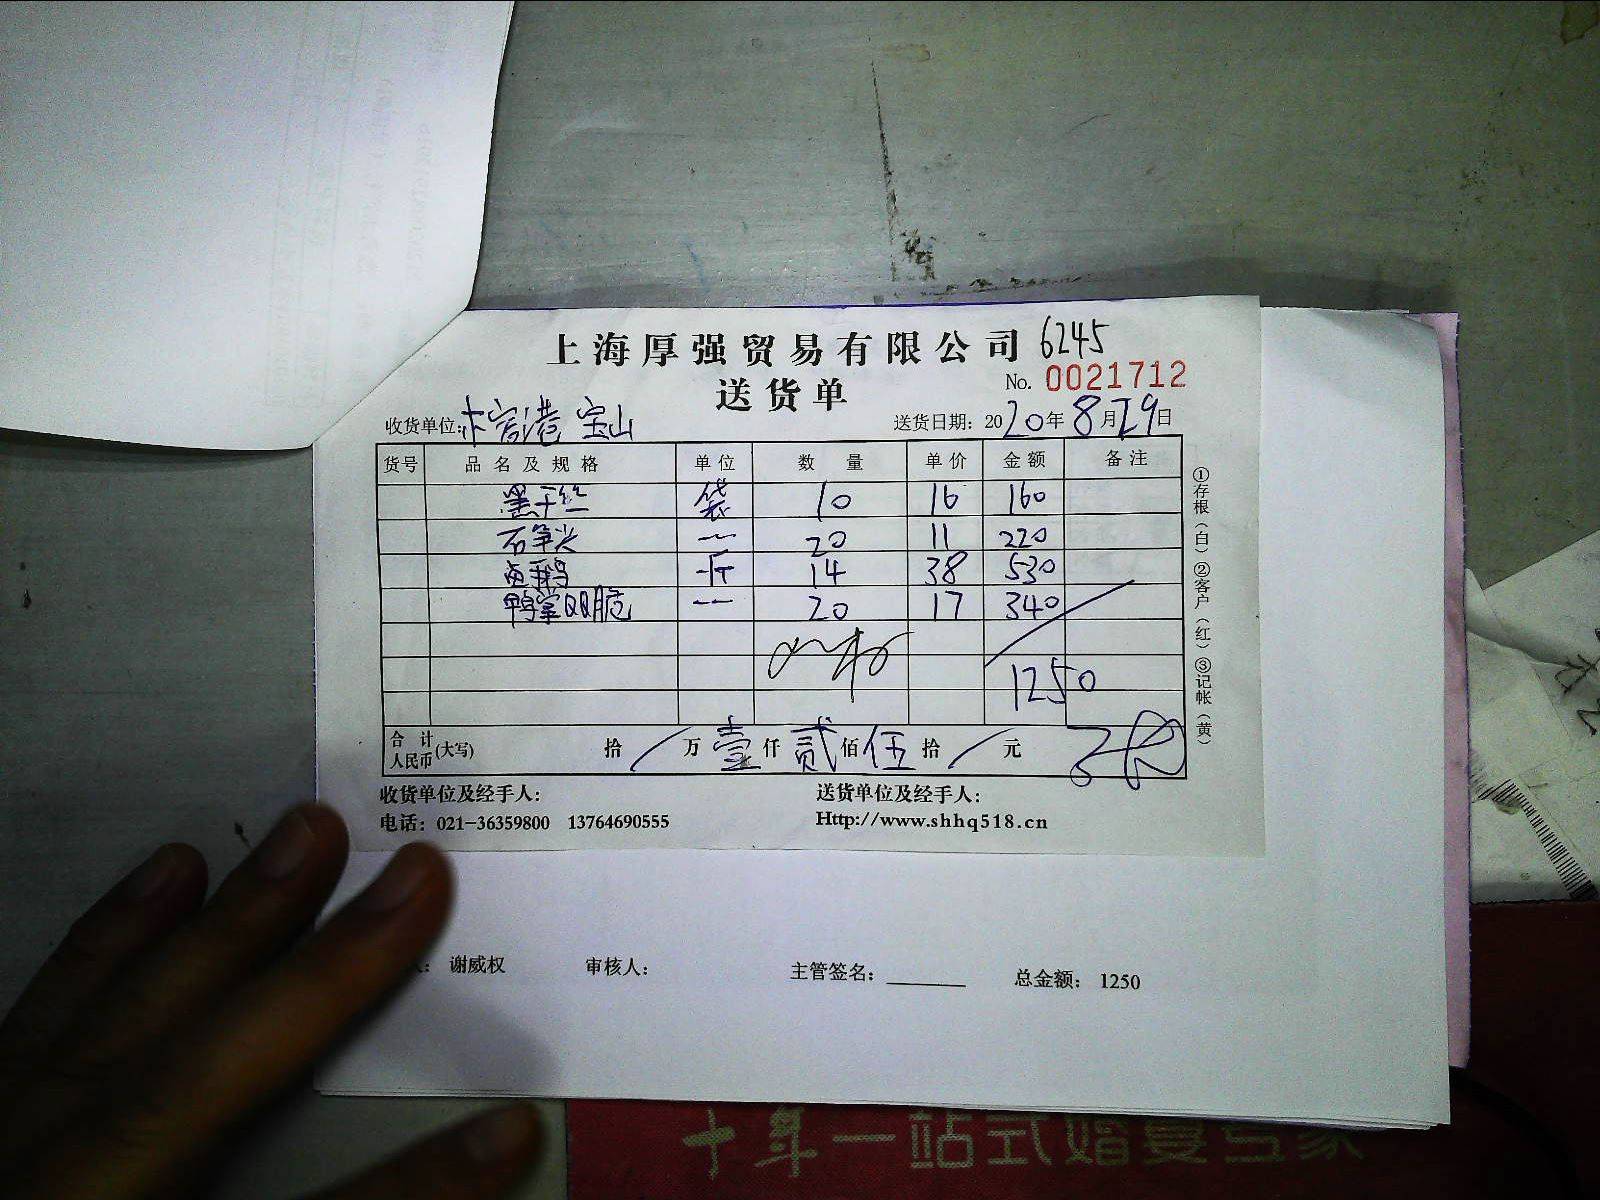 上海厚强贸易有限公司 6245
送货单 No. 0021712
收货单位: 宝山 送货日期: 2020年8月29日
货号 品名及规格 单位 数量 单价 金额 备注
黑干丝 袋 10 16 160
石笋尖 20 11 220
卤鹅 斤 14 38 530
鸭掌QQ脆 20 17 340
1250
合计人民币(大写) 拾 / 万 壹 仟 贰 佰 伍 拾 / 元
收货单位及经手人: 送货单位及经手人:
电话: 021-36359800 13764690555 Http://www.shhq518.cn
①存根(白)②客户(红)③记帐(黄)
人: 谢威权 审核人: 主管签名: 总金额: 1250
十年一站式婚宴专家